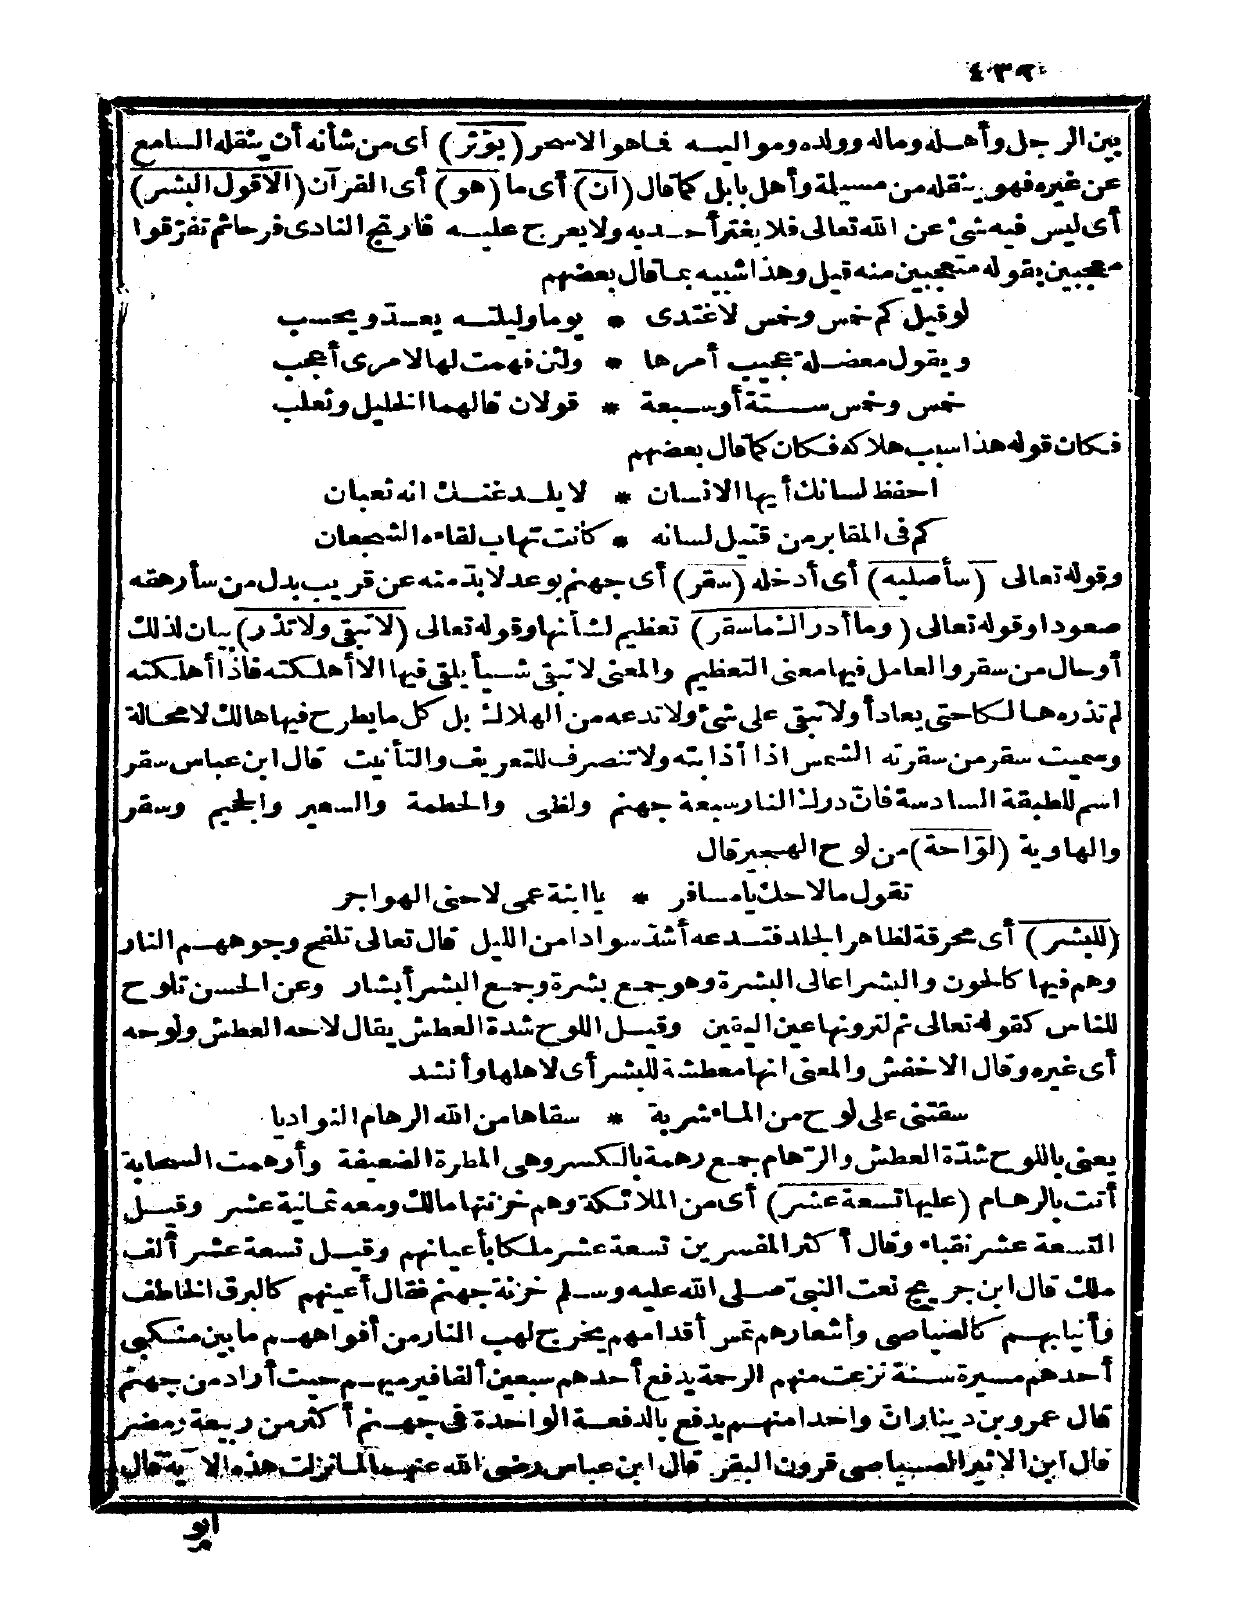 ٤٣٢
بين الرجل وأهله وماله وولده ومواليه فما هو الا سحر (يؤثر) أى من شأنه أن ينقله السامع
عن غيره فهو ينقله من مسيلة وأهل بابل كما قال (ان) أى ما (هو) أى القرآن (الا قول البشر)
أى ليس فيه شئ عن الله تعالى فلا يغتر أحد به ولا يعرج عليه فارتج النادى فرحا ثم تفرّقوا
معجبين بقوله متعجبين منه قيل وهذا شبيه بما قال بعضهم
لو قيل كم خمس وخمس لاغتدى * يوما وليلته يعدّ ويحسب
ويقول معضلة عجيب أمرها * ولئن فهمت لها لامرى أعجب
خمس وخمس ستة أو سبعة * قولان قالهما الخليل وثعلب
فكان قوله هذا سبب هلاكه فكان كما قال بعضهم
احفظ لسانك أيها الانسان * لا يلدغنك انه ثعبان
كم فى المقابر من قتيل لسانه * كانت تهاب لقاءه الشجعان
وقوله تعالى (سأصليه) أى أدخله (سقر) أى جهنم بوعد لا بدّ منه عن قريب بدل من سأرهقه
صعودا وقوله تعالى (وما أدراك ما سقر) تعظيم لشأنها وقوله تعالى (لا تبقى ولا تذر) بيان لذلك
أو حال من سقر والعامل فيها معنى التعظيم والمعنى لا تبقى شيأ يلقى فيها الا أهلكته فاذا أهلكته
لم تذره هالكا حتى يعاد أو لا تبقى على شئ ولا تدعه من الهلاك بل كل ما يطرح فيها هالك لا محالة
وسميت سقر من سقرته الشمس اذا أذابته ولا تنصرف للتعريف والتأنيث قال ابن عباس سقر
اسم للطبقة السادسة فانّ درك النار سبعة جهنم ولظى والحطمة والسعير والجحيم وسقر
والهاوية (لوّاحة) من لوح الهجير قال
تقول ما لاحك يا مسافر * يا ابنة عمى لاحنى الهواجر
(للبشر) أى محرقة لظاهر الجلد فتدعه أشدّ سوادا من الليل قال تعالى تلفح وجوههم النار
وهم فيها كالحون والبشر اعالى البشرة وهو جمع بشرة وجمع البشر أبشار وعن الحسن تلوح
للناس كقوله تعالى ثم لترونها عين اليقين وقيل اللوح شدة العطش يقال لاحه العطش ولوحه
أى غيره وقال الاخفش والمعنى انها معطشة للبشر أى لاهلها وأنشد
سقتنى على لوح من الماء شربة * سقاها من الله الرهام النواديا
يعنى باللوح شدّة العطش والرّهام جمع رهمة بالكسر وهى المطرة الضعيفة وأرهمت السحابة
أتت بالرهام (عليها تسعة عشر) أى من الملائكة وهم خزنتها مالك ومعه ثمانية عشر وقيل
التسعة عشر نقباء وقال أكثر المفسرين تسعة عشر ملكا بأعيانهم وقيل تسعة عشر ألف
ملك قال ابن جريج نعت النبىّ صلى الله عليه وسلم خزنة جهنم فقال أعينهم كالبرق الخاطف
وأنيابهم كالصياصى وأشعارهم تمس أقدامهم يخرج لهب النار من أفواههم ما بين منكبى
أحدهم مسيرة سنة نزعت منهم الرحمة يدفع أحدهم سبعين ألفا فيرميهم حيث أراد من جهنم
قال عمرو بن دينار انّ واحدا منهم يدفع بالدفعة الواحدة فى جهنم أكثر من ربيعة ومضر
قال ابن الاثير الصياصى قرون البقر قال ابن عباس رضى الله عنهما لما نزلت هذه الآية قال
ابو